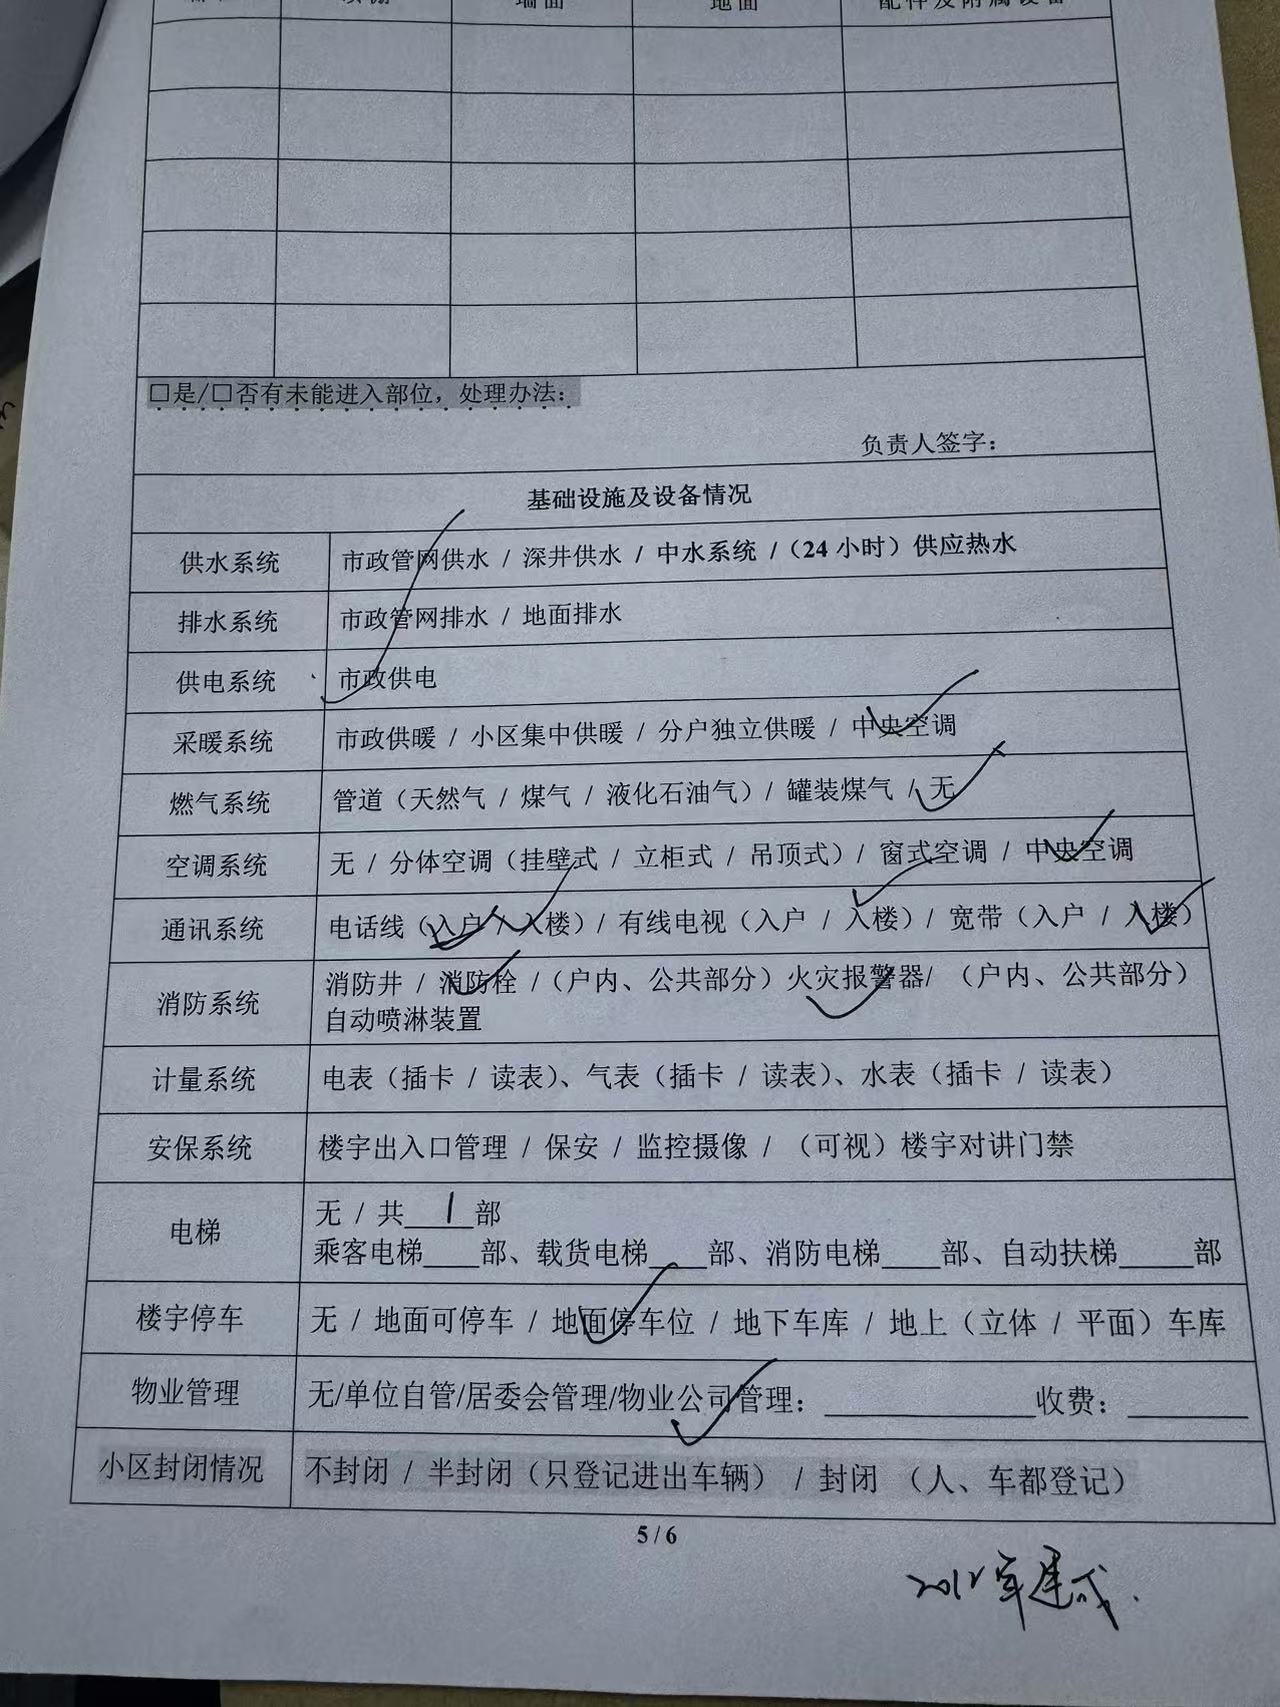 墙面 地面 配件及附属设备
□是/□否有未能进入部位，处理办法：
负责人签字：
基础设施及设备情况
供水系统 市政管网供水 / 深井供水 / 中水系统 /（24 小时）供应热水
排水系统 市政管网排水 / 地面排水
供电系统 市政供电
采暖系统 市政供暖 / 小区集中供暖 / 分户独立供暖 / 中央空调
燃气系统 管道（天然气 / 煤气 / 液化石油气）/ 罐装煤气 / 无
空调系统 无 / 分体空调（挂壁式 / 立柜式 / 吊顶式）/ 窗式空调 / 中央空调
通讯系统 电话线（入户 / 入楼）/ 有线电视（入户 / 入楼）/ 宽带（入户 / 入楼）
消防系统 消防井 / 消防栓 /（户内、公共部分）火灾报警器/ （户内、公共部分）
自动喷淋装置
计量系统 电表（插卡 / 读表）、气表（插卡 / 读表）、水表（插卡 / 读表）
安保系统 楼宇出入口管理 / 保安 / 监控摄像 / （可视）楼宇对讲门禁
电梯 无 / 共 1 部
乘客电梯____部、载货电梯____部、消防电梯____部、自动扶梯_____部
楼宇停车 无 / 地面可停车 / 地面停车位 / 地下车库 / 地上（立体 / 平面）车库
物业管理 无/单位自管/居委会管理/物业公司管理：______________收费：________
小区封闭情况 不封闭 / 半封闭（只登记进出车辆） / 封闭 （人、车都登记）
5 / 6
2012年建成.